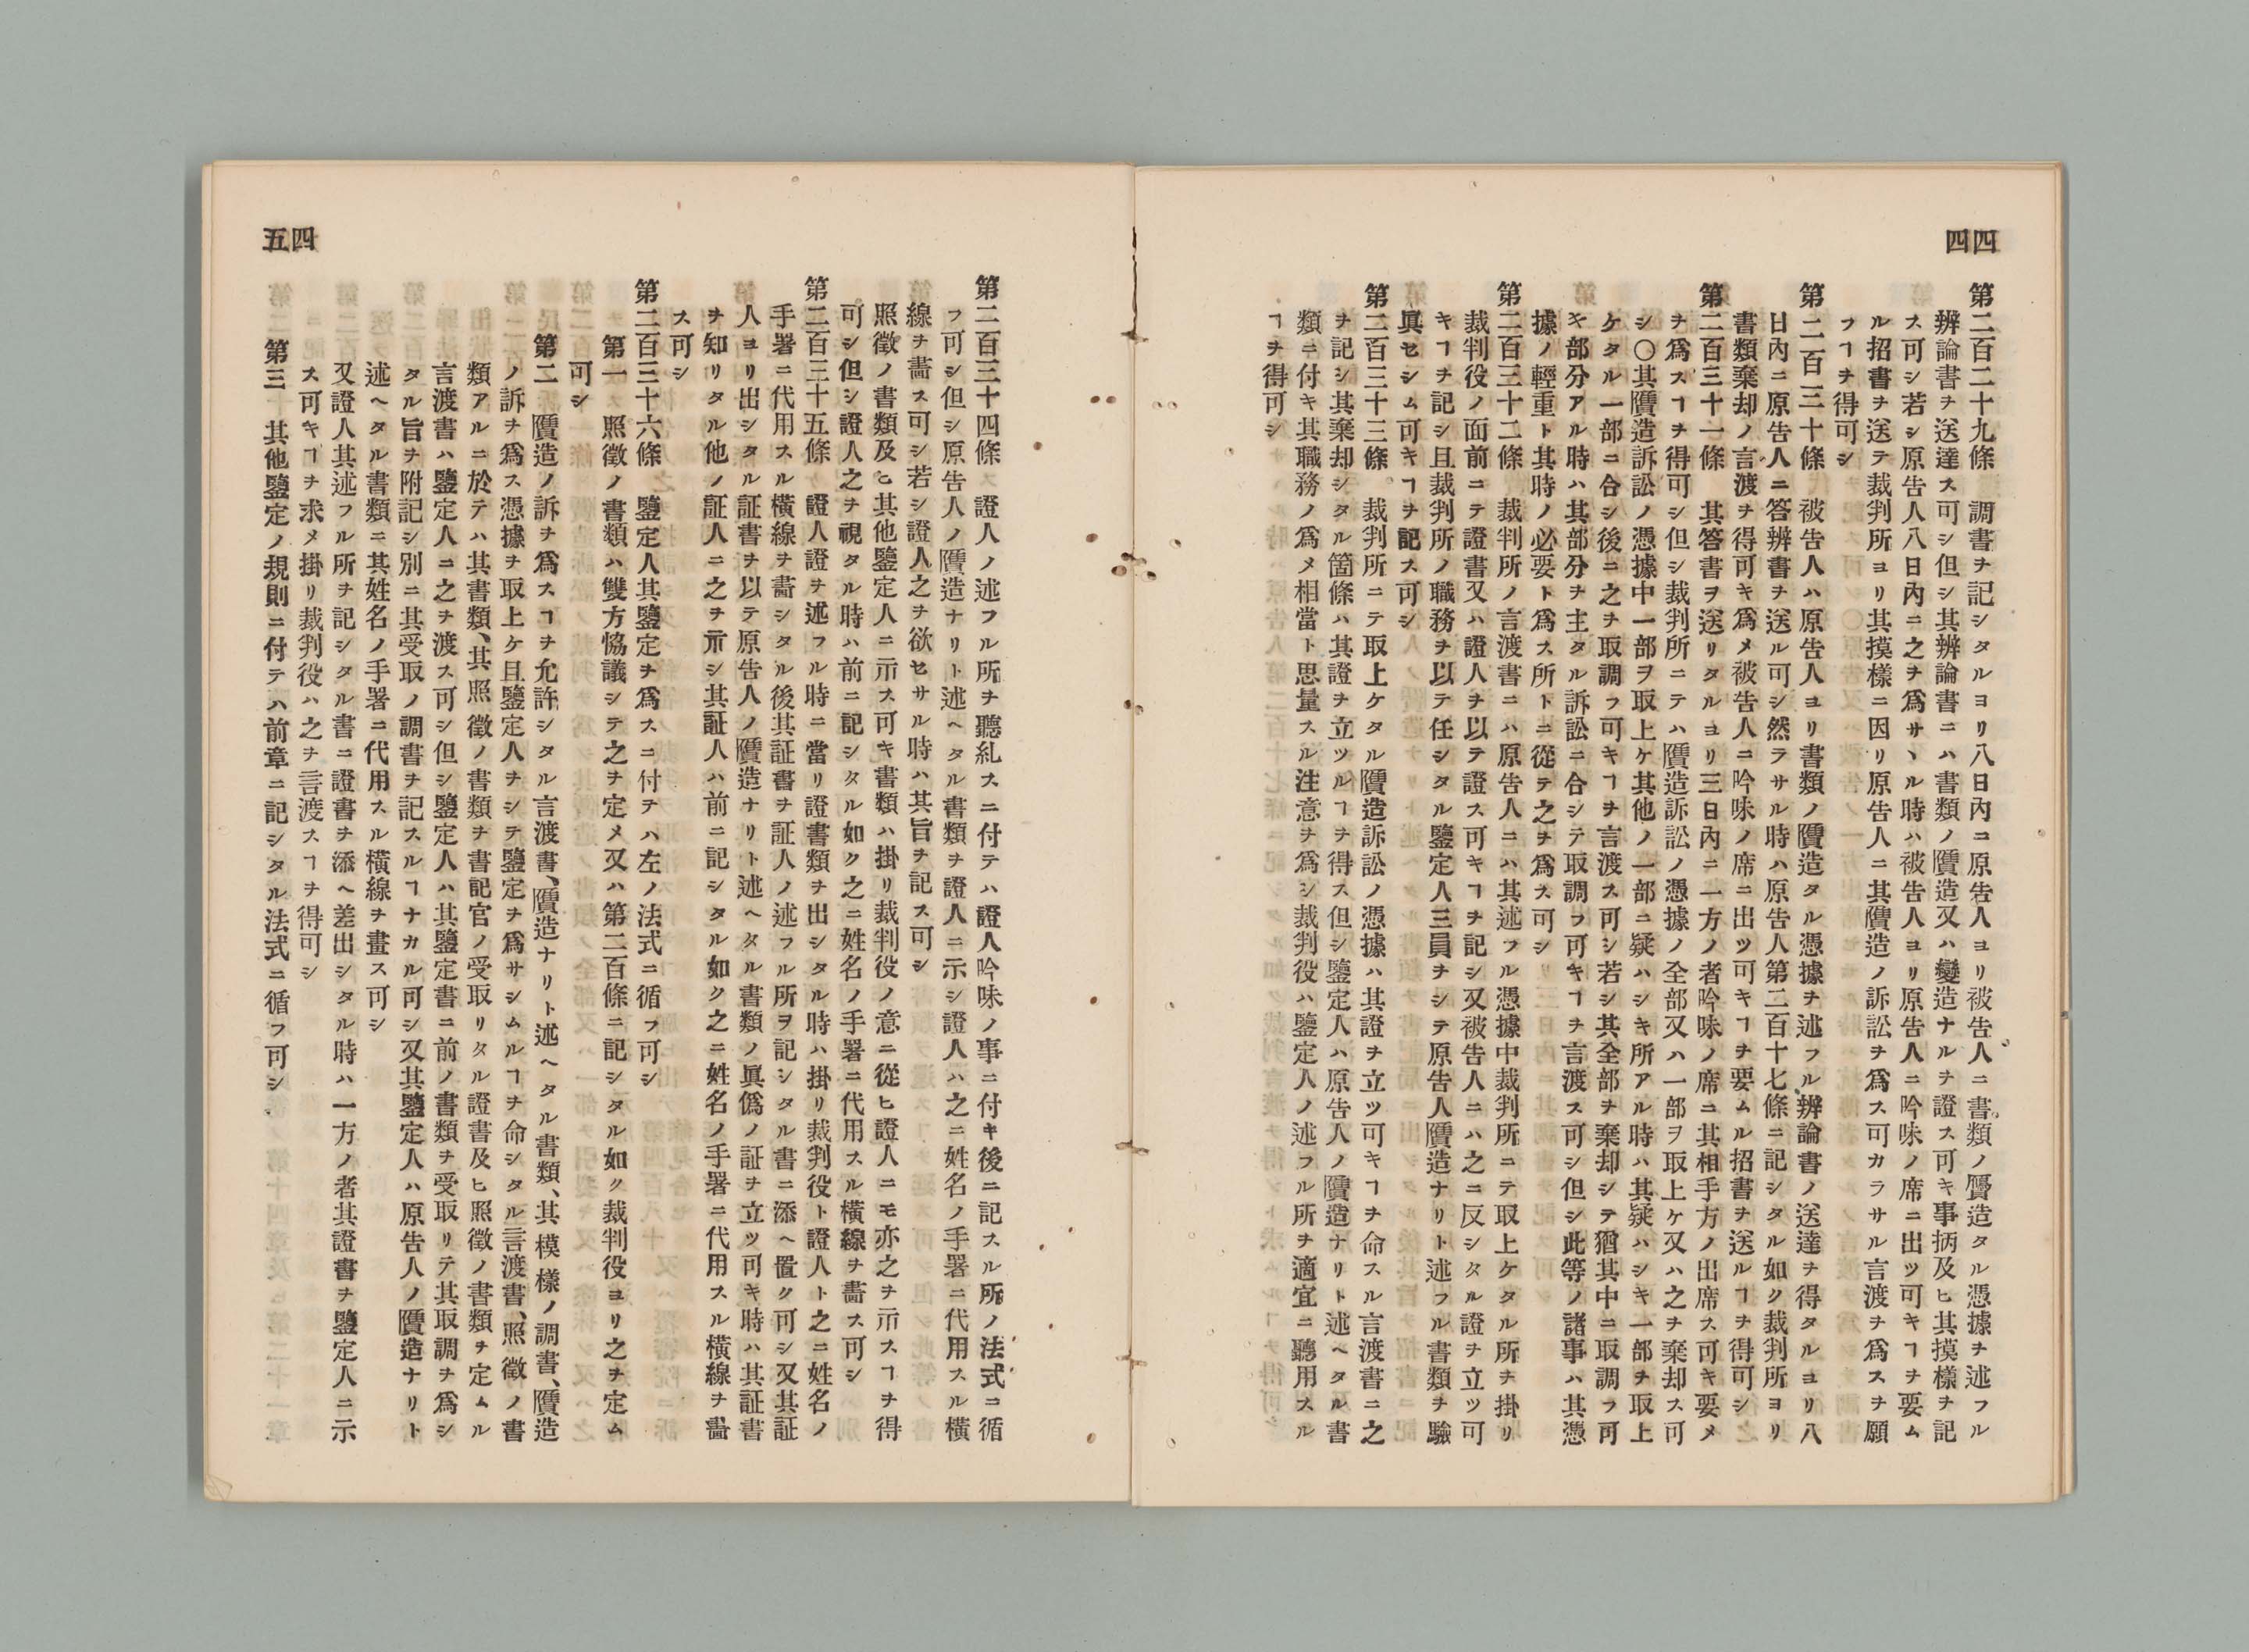 四四
第二百二十九條　調書ヲ記シタルヨリ八日內ニ原告人ヨリ被告人ニ書類ノ贋造タル憑據ヲ述フル
辨論書ヲ送達ス可シ但シ其辨論書ニハ書類ノ贋造又ハ變造ナルヲ證ス可キ事抦及ヒ其摸樣ヲ記
ス可シ若シ原告人八日內ニ之ヲ爲サヽル時ハ被告人ヨリ原告人ニ吟味ノ席ニ出ツ可キヿヲ要ム
ル招書ヲ送テ裁判所ヨリ其摸樣ニ因リ原告人ニ其贋造ノ訴訟ヲ爲ス可カラサル言渡ヲ爲スヲ願
フヿヲ得可シ
第二百三十條　被告人ハ原告人ヨリ書類ノ贋造タル憑據ヲ述フル辨論書ノ送達ヲ得タルヨリ八
日內ニ原告人ニ答辨書ヲ送ル可シ然ラサル時ハ原告人第二百十七條ニ記シタル如ク裁判所ヨリ
書類棄却ノ言渡ヲ得可キ爲メ被告人ニ吟味ノ席ニ出ツ可キヿヲ要ムル招書ヲ送ルヿヲ得可シ
第二百三十一條　其答書ヲ送リタルヨリ三日內ニ一方ノ者吟味ノ席ニ其相手方ノ出席ス可キ要メ
ヲ爲スヿヲ得可シ但シ裁判所ニテハ贋造訴訟ノ憑據ノ全部又ハ一部ヲ取上ケ又ハ之ヲ棄却ス可
シ〇其贋造訴訟ノ憑據中一部ヲ取上ケ其他ノ一部ニ疑ハシキ所アル時ハ其疑ハシキ一部ヲ取上
ケタル一部ニ合シ後ニ之ヲ取調フ可キヿヲ言渡ス可シ若シ其全部ヲ棄却シテ猶其中ニ取調フ可
キ部分アル時ハ其部分ヲ主タル訴訟ニ合シテ取調フ可キヿヲ言渡ス可シ但シ此等ノ諸事ハ其憑
據ノ輕重ト其時ノ必要ト爲ス所トニ從テ之ヲ爲ス可シ
第二百三十二條　裁判所ノ言渡書ニハ原告人ニハ其述フル憑據中裁判所ニテ取上ケタル所ヲ掛リ
裁判役ノ面前ニテ證書又ハ證人ヲ以テ證ス可キヿヲ記シ又被告人ニハ之ニ反シタル證ヲ立ツ可
キヿヲ記シ且裁判所ノ職務ヲ以テ任シタル鑒定人三員ヲシテ原告人贋造ナリト述フル書類ヲ驗
眞セシム可キヿヲ記ス可シ
第二百三十三條　裁判所ニテ取上ケタル贋造訴訟ノ憑據ハ其證ヲ立ツ可キヿヲ命スル言渡書ニ之
ヲ記シ其棄却シタル箇條ハ其證ヲ立ツルヿヲ得ス但シ鑒定人ハ原告人ノ贋造ナリト述ヘタル書
類ニ付キ其職務ノ爲メ相當ト思量スル注意ヲ爲シ裁判役ハ鑒定人ノ述フル所ヲ適宜ニ聽用スル
ヿヲ得可シ
四五
第二百三十四條　證人ノ述フル所ヲ聽糺スニ付テハ證人吟味ノ事ニ付キ後ニ記スル所ノ法式ニ循
フ可シ但シ原告人ノ贋造ナリト述ヘタル書類ヲ證人ニ示シ證人ハ之ニ姓名ノ手署ニ代用スル橫
線ヲ畵ス可シ若シ證人之ヲ欲セサル時ハ其旨ヲ記ス可シ
照徵ノ書類及ヒ其他鑒定人ニ示ス可キ書類ハ掛リ裁判役ノ意ニ從ヒ證人ニモ亦之ヲ示スヿヲ得
可シ但シ證人之ヲ視タル時ハ前ニ記シタル如ク之ニ姓名ノ手署ニ代用スル橫線ヲ畵ス可シ
第二百三十五條　證人證ヲ述フル時ニ當リ證書類ヲ出シタル時ハ掛リ裁判役ト證人ト之ニ姓名ノ
手署ニ代用スル橫線ヲ畵シタル後其証書ヲ証人ノ述フル所ヲ記シタル書ニ添ヘ置ク可シ又其証
人ヨリ出シタル証書ヲ以テ原告人ノ贋造ナリト述ヘタル書類ノ眞僞ノ証ヲ立ツ可キ時ハ其証書
ヲ知リタル他ノ証人ニ之ヲ示シ其証人ハ前ニ記シタル如ク之ニ姓名ノ手署ニ代用スル橫線ヲ畵
ス可シ
第二百三十六條　鑒定人其鑒定ヲ爲スニ付テハ左ノ法式ニ循フ可シ
第一　照徵ノ書類ハ雙方恊議シテ之ヲ定メ又ハ第二百條ニ記シタル如ク裁判役ヨリ之ヲ定ム
可シ
第二　贋造ノ訴ヲ爲スヿヲ允許シタル言渡書、贋造ナリト述ヘタル書類、其模樣ノ調書、贋造
ノ訴ヲ爲ス憑據ヲ取上ケ且鑒定人ヲシテ鑒定ヲ爲サシムルヿヲ命シタル言渡書、照徵ノ書
類アルニ於テハ其書類、其照徵ノ書類ヲ書記官ノ受取リタル證書及ヒ照徵ノ書類ヲ定ムル
言渡書ハ鑒定人ニ之ヲ渡ス可シ但シ鑒定人ハ其鑒定書ニ前ノ書類ヲ受取リテ其取調ヲ爲シ
タル旨ヲ附記シ別ニ其受取ノ調書ヲ記スルヿナカル可シ又其鑒定人ハ原告人ノ贋造ナリト
述ヘタル書類ニ其姓名ノ手署ニ代用スル橫線ヲ畫ス可シ
又證人其述フル所ヲ記シタル書ニ證書ヲ添ヘ差出シタル時ハ一方ノ者其證書ヲ鑒定人ニ示
ス可キヿヲ求メ掛リ裁判役ハ之ヲ言渡スヿヲ得可シ
第三　其他鑒定ノ規則ニ付テハ前章ニ記シタル法式ニ循フ可シ